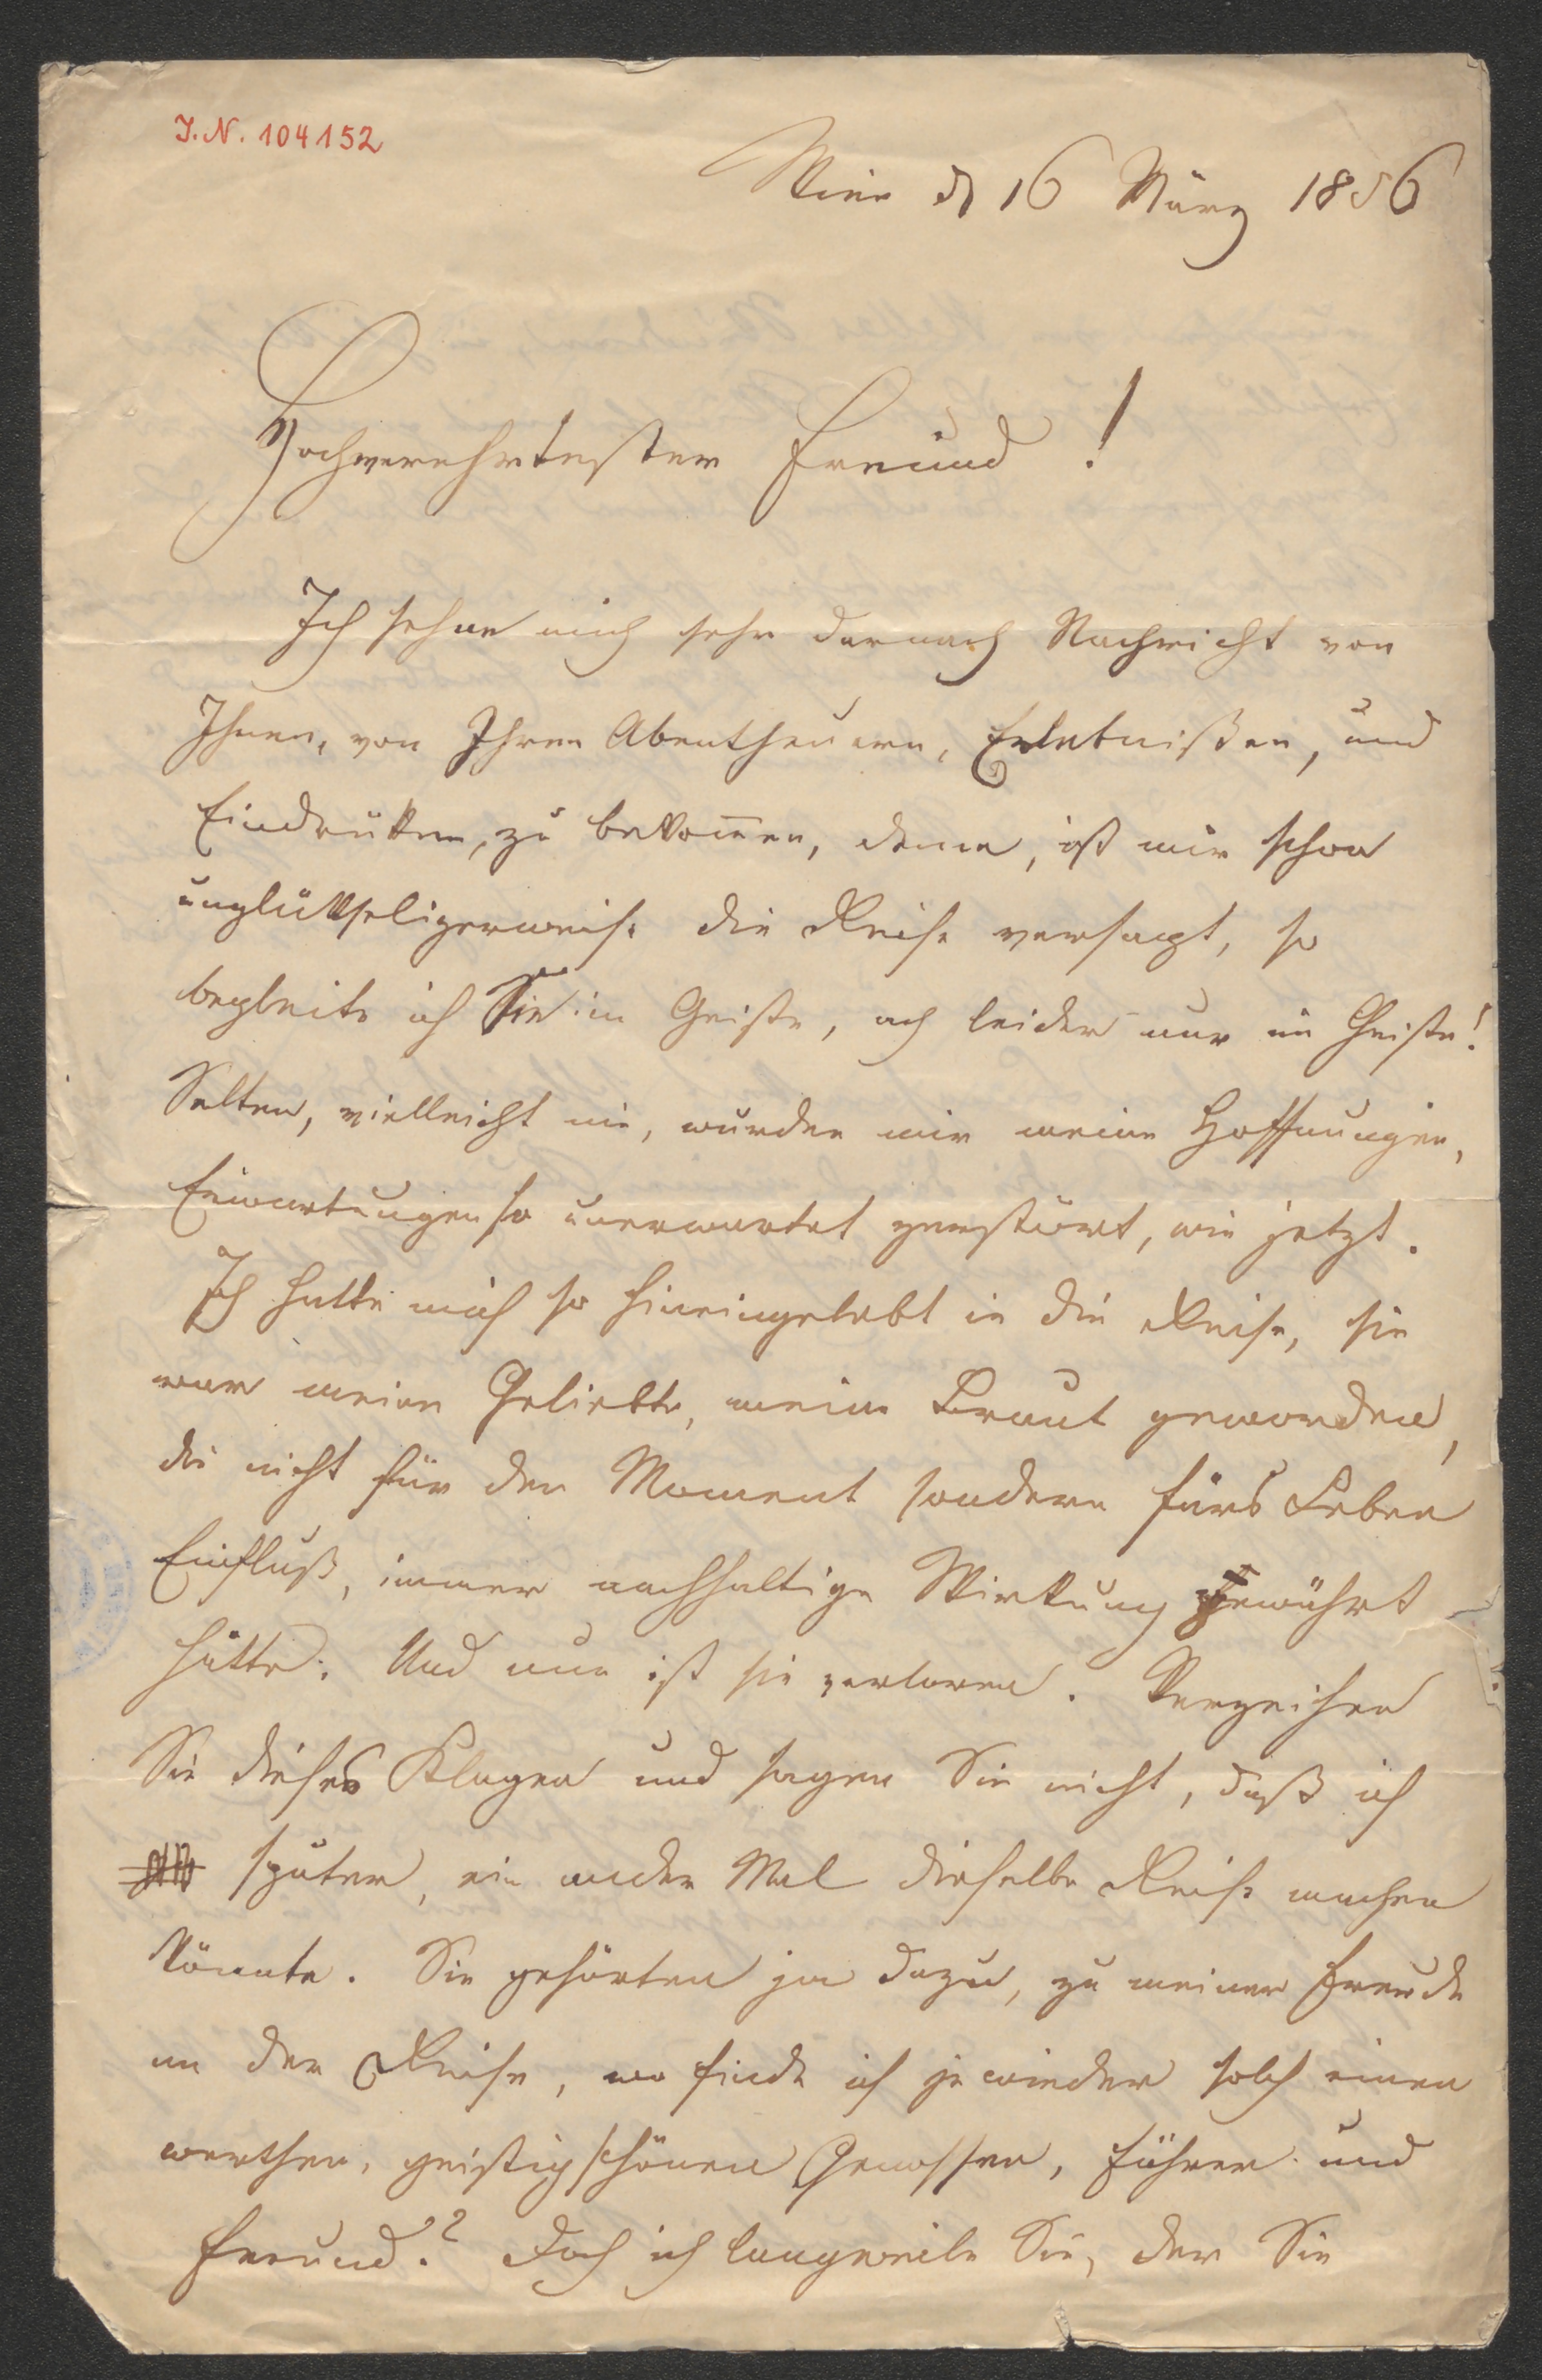 J.N. 104152
Wien d 16 März 1856
Hochverehrtester Freund!
Ich sehne mich sehr darnach Nachricht von
Ihnen, von Ihren Abentheuern, Erlebnißen, und
Eindrüken, zu bekom̄en, denn, ist mir schon
unglükseligerweise die Reise versagt, so
begleite ich Sie im Geiste, ach leider nur im Geiste!
Selten, vielleicht nie, wurden mir meine Hoffnungen,
Erwartungen so unerwartet zerstört, wie jetzt.
Ich hatte mich so hineingelebt in die Reise, sie
war meine Geliebte, meine Braut geworden,
die nicht für den Moment sondern fürs Leben
Einfluß, immer nachhaltige Wirkung gewährt
hätte. Und nun ist sie verloren. Verzeihen
Sie dieses Klagen und sagen Sie nicht, daß ich
später, ein ander Mal dieselbe Reise machen
könnte. Sie gehörten ja dazu, zu meiner Freude
an der Reise, wo finde ich je wieder solch einen
werthen, geistig schönen Genossen, Führer und
Freund? Doch ich langweile Sie, der Sie